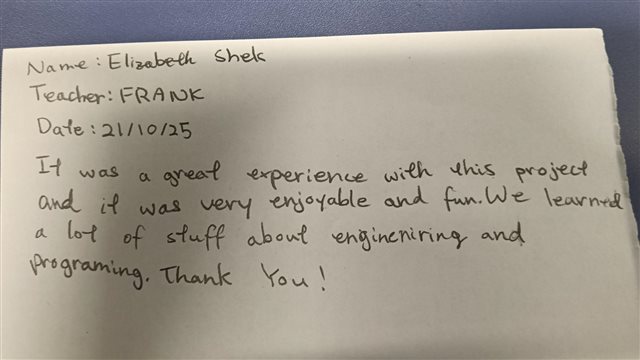 Name: Elizabeth Shek
Teacher: FRANK
Date: 21/10/25
It was a great experience with this project
and it was very enjoyable and fun. We learned
a lot of stuff about engineniring and
programing. Thank You!